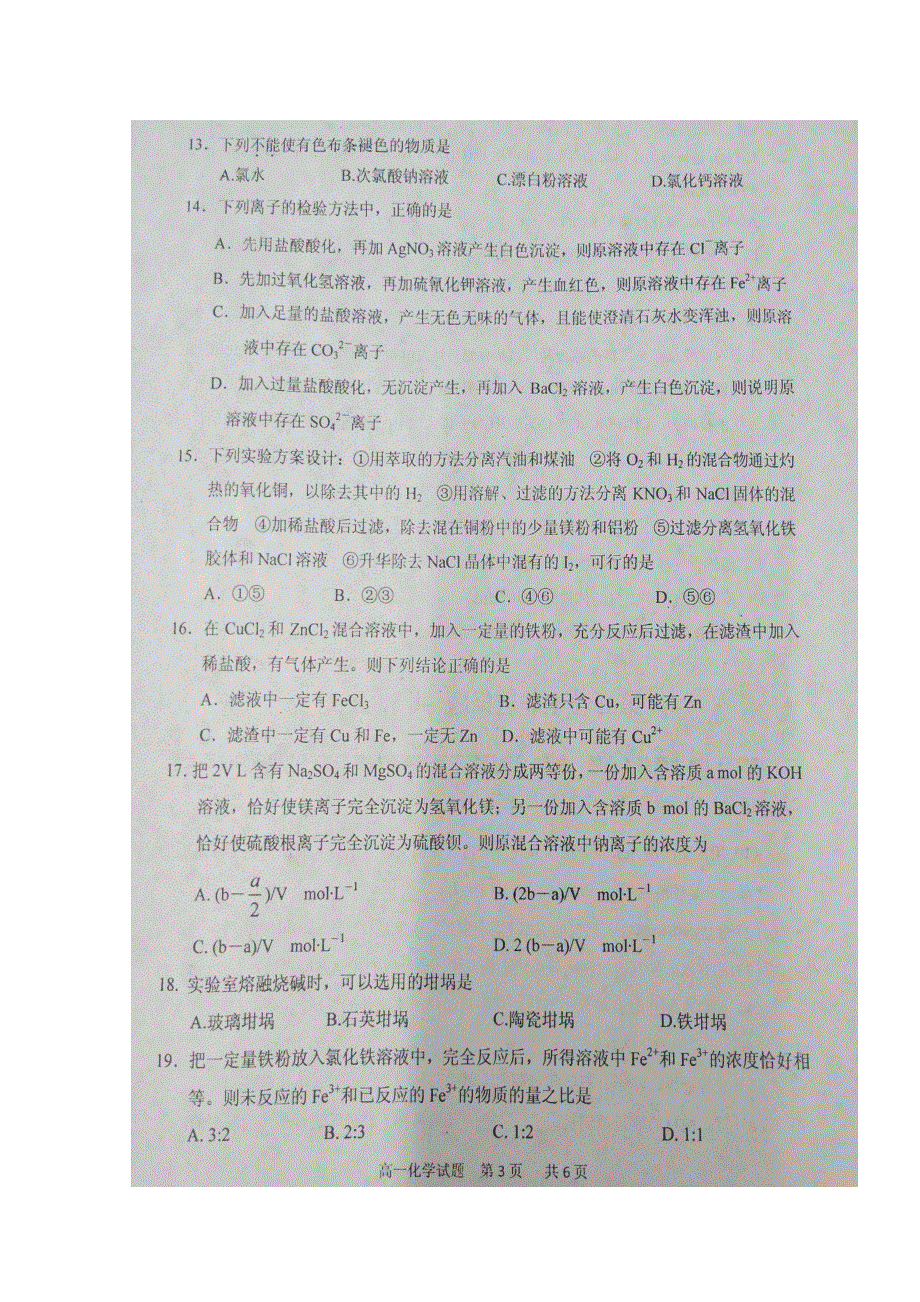 13．下列不能使有色布条褪色的物质是
A.氯水 B.次氯酸钠溶液 C.漂白粉溶液 D.氯化钙溶液
14．下列离子的检验方法中，正确的是
A．先用盐酸酸化，再加 AgNO₃ 溶液产生白色沉淀，则原溶液中存在 Cl⁻离子
B．先加过氧化氢溶液，再加硫氰化钾溶液，产生血红色，则原溶液中存在 Fe²⁺离子
C．加入足量的盐酸溶液，产生无色无味的气体，且能使澄清石灰水变浑浊，则原溶
液中存在 CO₃²⁻离子
D．加入过量盐酸酸化，无沉淀产生，再加入 BaCl₂ 溶液，产生白色沉淀，则说明原
溶液中存在 SO₄²⁻离子
15．下列实验方案设计：①用萃取的方法分离汽油和煤油 ②将 O₂ 和 H₂ 的混合物通过灼
热的氧化铜，以除去其中的 H₂ ③用溶解、过滤的方法分离 KNO₃ 和 NaCl 固体的混
合物 ④加稀盐酸后过滤，除去混在铜粉中的少量镁粉和铝粉 ⑤过滤分离氢氧化铁
胶体和 NaCl 溶液 ⑥升华除去 NaCl 晶体中混有的 I₂，可行的是
A．①⑤ B．②③ C．④⑥ D．⑤⑥
16．在 CuCl₂ 和 ZnCl₂ 混合溶液中，加入一定量的铁粉，充分反应后过滤，在滤渣中加入
稀盐酸，有气体产生。则下列结论正确的是
A．滤液中一定有 FeCl₃ B．滤渣只含 Cu，可能有 Zn
C．滤渣中一定有 Cu 和 Fe，一定无 Zn D．滤液中可能有 Cu²⁺
17. 把 2V L 含有 Na₂SO₄ 和 MgSO₄ 的混合溶液分成两等份，一份加入含溶质 a mol 的 KOH
溶液，恰好使镁离子完全沉淀为氢氧化镁；另一份加入含溶质 b mol 的 BaCl₂ 溶液，
恰好使硫酸根离子完全沉淀为硫酸钡。则原混合溶液中钠离子的浓度为
A. (b－a/2)/V mol·L⁻¹ B. (2b－a)/V mol·L⁻¹
C. (b－a)/V mol·L⁻¹ D. 2 (b－a)/V mol·L⁻¹
18. 实验室熔融烧碱时，可以选用的坩埚是
A.玻璃坩埚 B.石英坩埚 C.陶瓷坩埚 D.铁坩埚
19．把一定量铁粉放入氯化铁溶液中，完全反应后，所得溶液中 Fe²⁺和 Fe³⁺的浓度恰好相
等。则未反应的 Fe³⁺和已反应的 Fe³⁺的物质的量之比是
A. 3:2 B. 2:3 C. 1:2 D. 1:1
高一化学试题 第 3 页 共 6 页